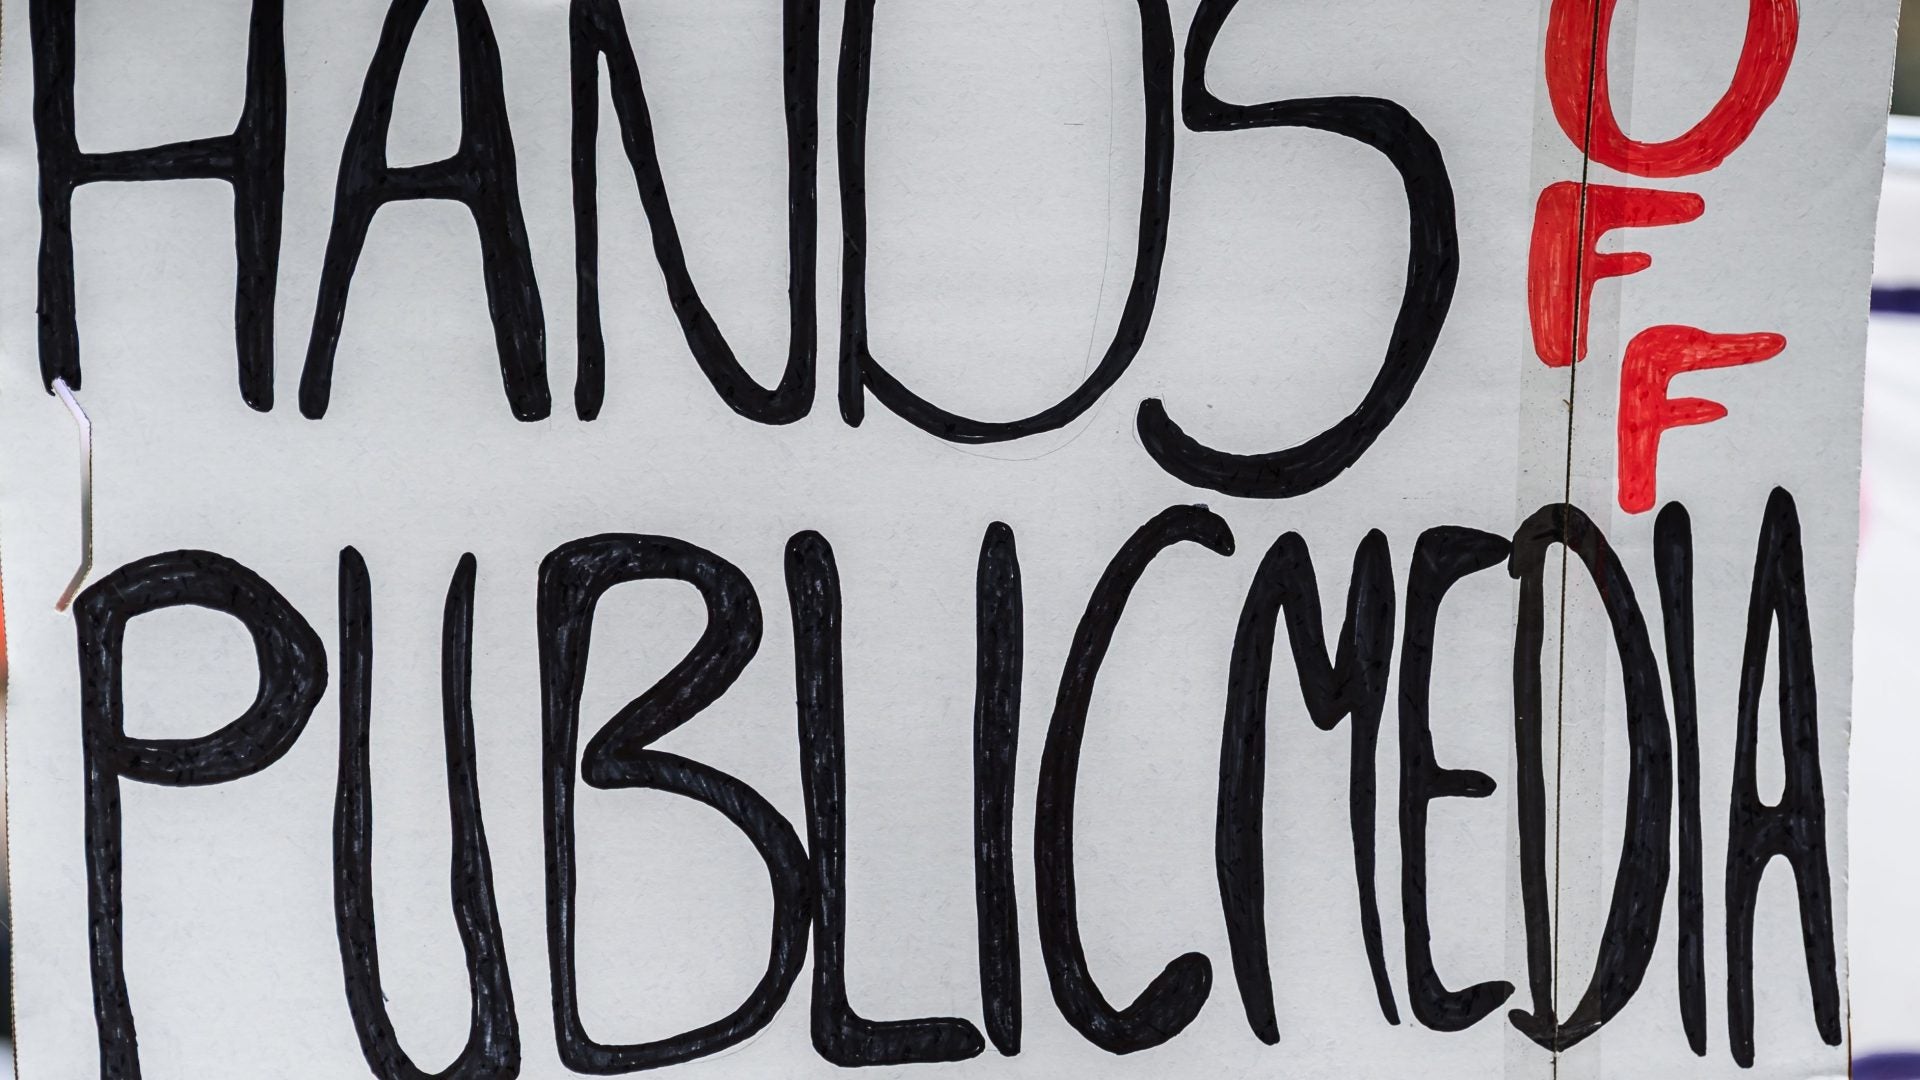 HANDS OFF
PUBLIC MEDIA